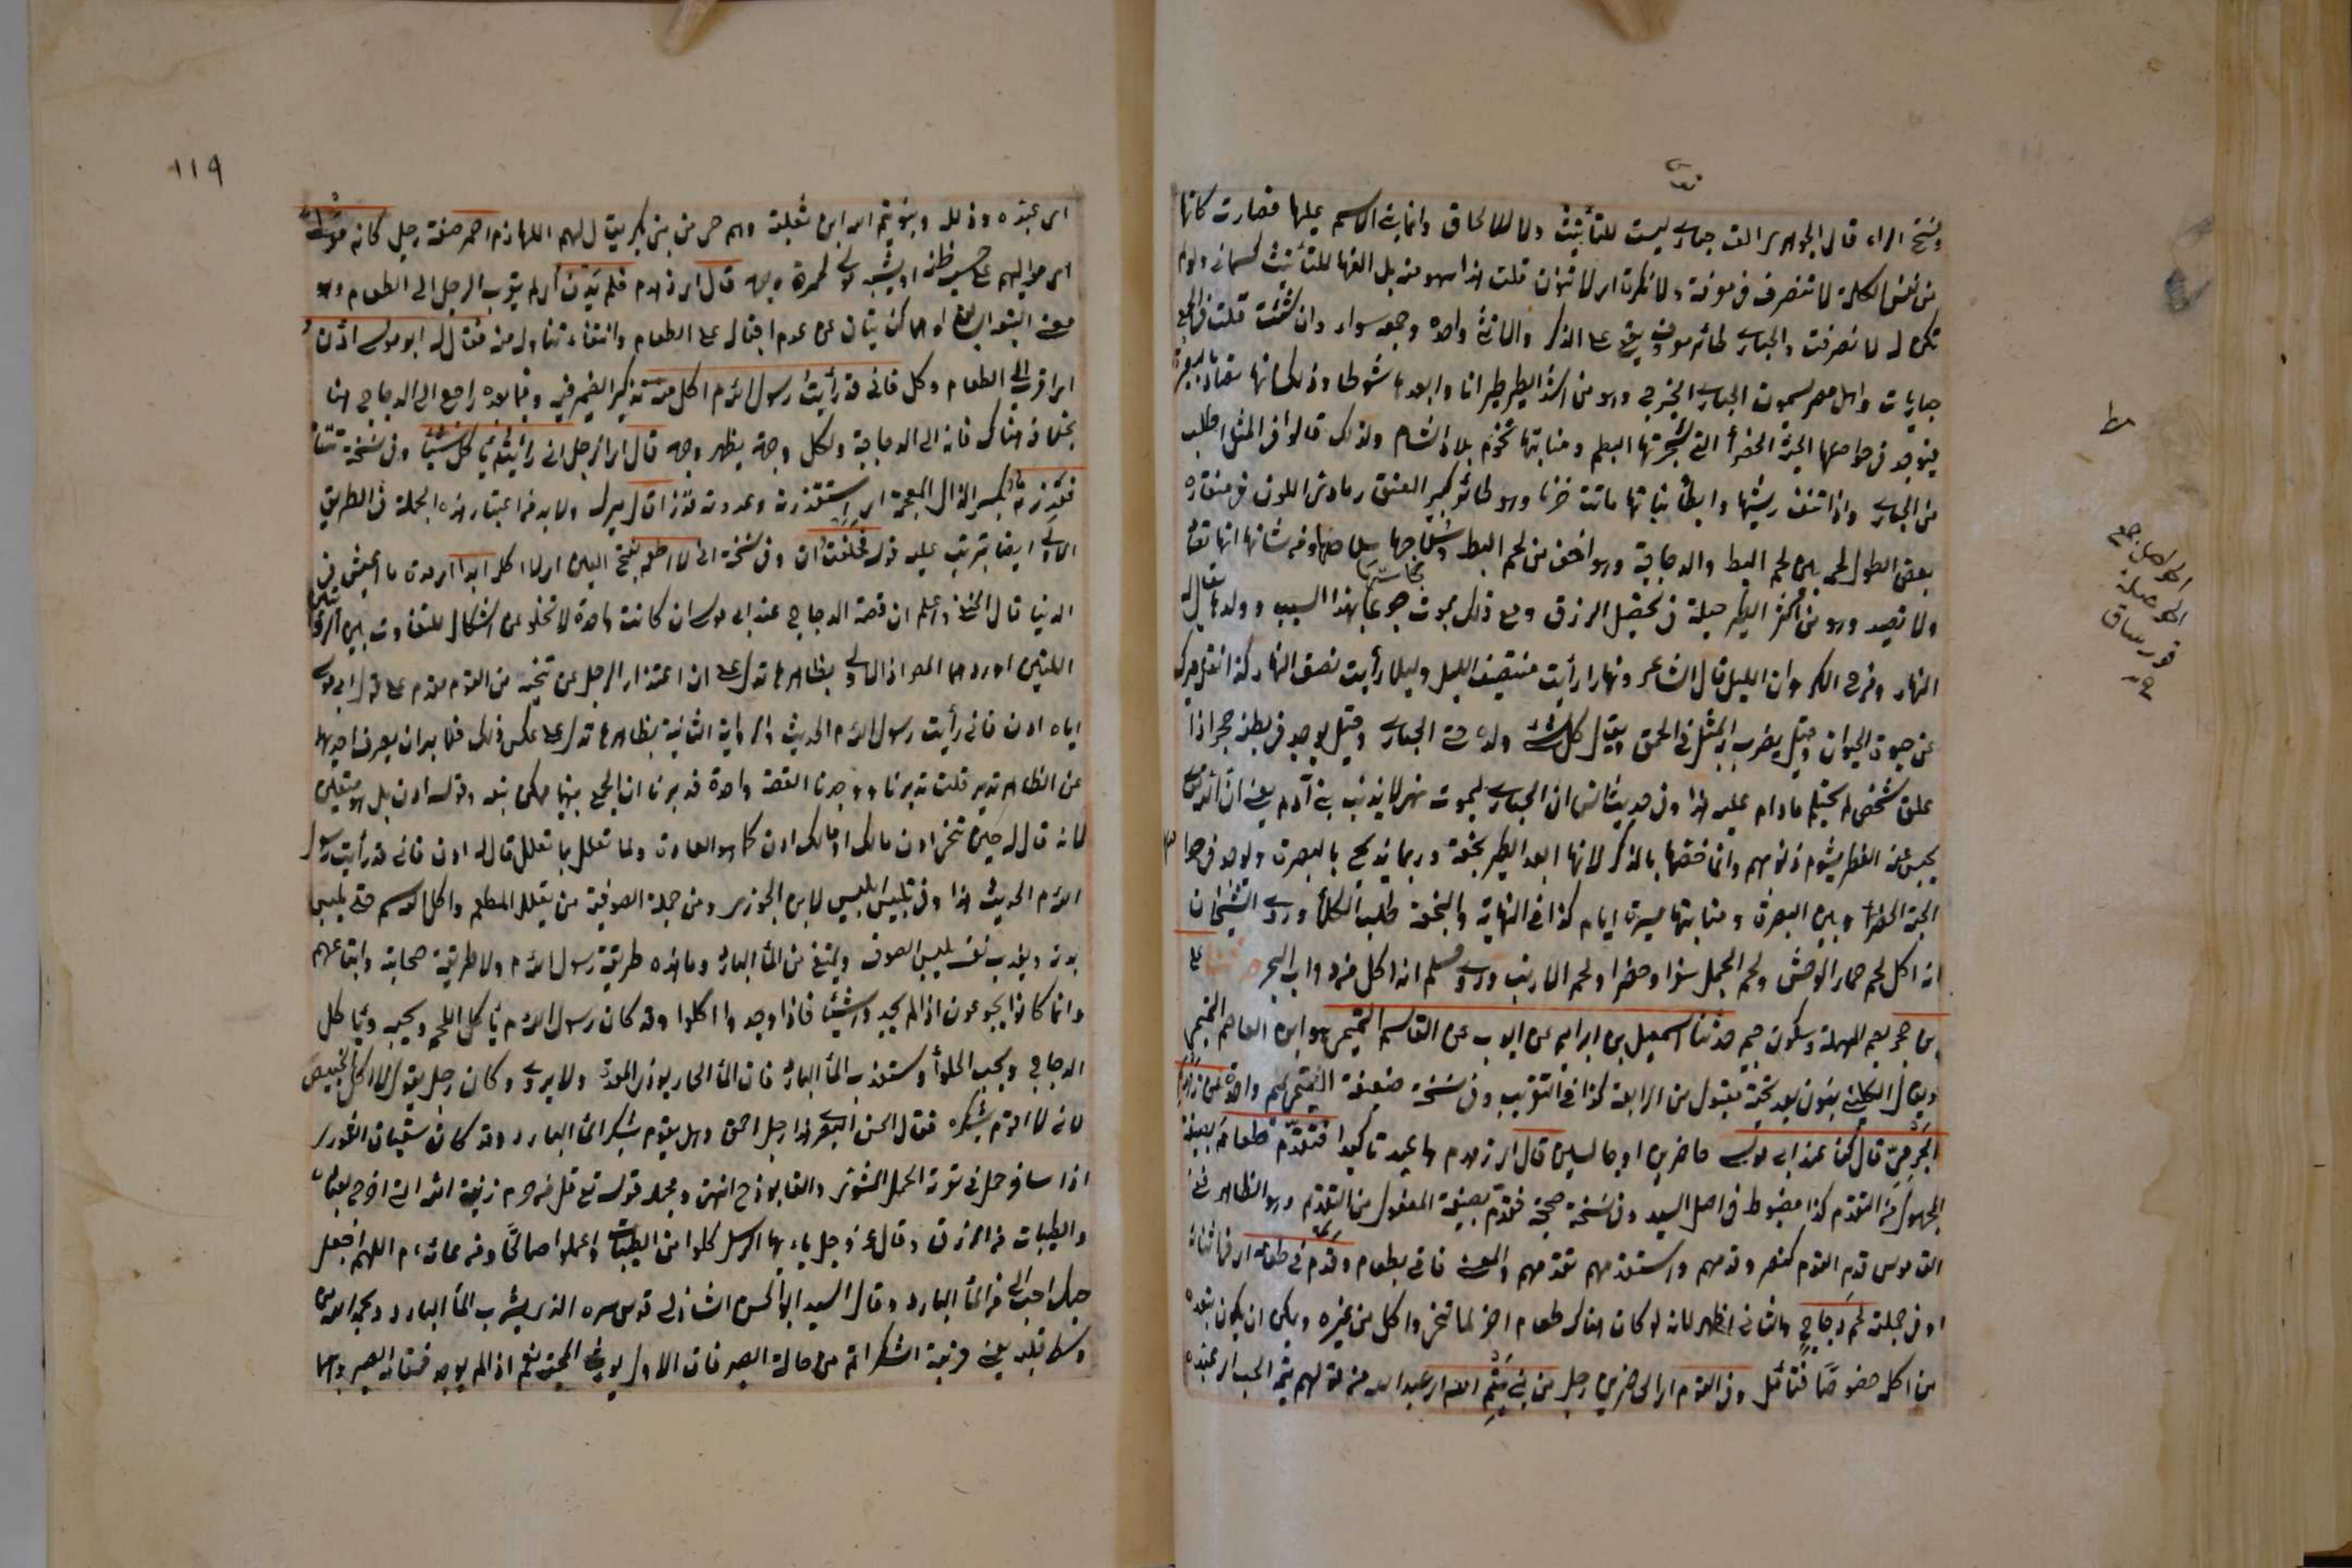 وفتح الراء قال الجوهري الف حبارى ليست للتأنيث ولا للالحاق وانما بنى الاسم عليها فصارت كانها
من نفس الكلمة لا تنصرف في معرفة ولا نكرة اى لا تنون قلت هذا سهو منه بل الفها للتأنيث كسمانى ولو لم
تكن له لانصرفت والحبارى طائر معروف يقع على الذكر والانثى واحده وجمعه سواء وان شئت قلت في الجمع
حباريات واهل مصر يسمون الحبارى الحبرج وهو من اشد الطير طيرانا وابعدها شوطا وذلك انها تصاد بالبصرة
فيوجد في حواصلها الحبة الخضراء التي شجرتها البطم ومنابتها تخوم بلاد الشام ولذلك قالوا في المثل اطلب
من الحبارى واذا نتف ريشها وابطأ نباتها ماتت حزنا وهو طائر كبير العنق رمادي اللون في منقاره
بعض الطول لحمه بين لحم البط والدجاجة وهو اخف من لحم البط وسلاحها سلاحها ومن شانها انها تصاد
ولا تصيد وهو من اكثر الطير حيلة في تحصيل الرزق ومع ذلك يموت جوعا بهذا السبب وولدها يقال له
النهار وفرخ الكروان الليل قال الشاعر ونهارا رأيت منتصف الليل وليلا رأيت نصف النهار كذا نقله ميرك
عن حيوة الحيوان وقيل يضرب به المثل في الحمق ويقال كل شئ يحب ولده حتى الحبارى وقيل يوجد في بطنه حجر اذا
علق على شخص لم يحتلم ما دام عليه هذا وفي حديث انس ان الحبارى ليموت هزلا بذنب بني آدم يعنى ان الله تعالى
يحبس عنه القطر بشوم ذنوبهم وانما خصها بالذكر لانها ابعد الطير نجعة وربما تذبح بالبصرة ويوجد في حوا
الحبة الخضراء وبين البصرة ومنابتها مسيرة ايام كذا في النهاية والنجعة طلب الكلأ وروى الشيخان
انه اكل لحم حمار الوحش ولحم الجمل سفرا وحضرا ولحم الارنب وروى مسلم انه اكل من دواب البحر حدثنا على
بن حجر بضم المهملة وسكون جيم حدثنا اسمعيل بن ابراهيم عن ايوب عن القاسم التميمي هو ابن العاصم التميمي
ويقال الكليني بنون بعد تحتية مقبول من الرابعة كذا في التقريب وفي نسخة ضعيفة التيمي بميم واحدة عن زهدم
الجرمي قال كنا عند ابى موسى حاضرين او جالسين قال اى زهدم اعيد تاكيدا فتقدم طعامه بصيغة
المجهول من التقدم كذا مضبوط في اصل السيد وفي نسخة صحيحة فقدم بصيغة المفعول من التقديم وهو الظاهر ففي
القاموس قدم القوم كنصر وقدمهم واستقدمهم تقدمهم والمعنى فاتى بطعام وقدم في طعامه اى في اثنائه
او في جملته لحم دجاج والثاني اظهر لانه لو كان هناك طعام اخر لما تنحى واكل من غيره ويمكن ان يكون بعده
من اكله خصوصا فتأمل وفي القوم اى الحاضرين رجل من بني تيم الله اى عبد الله من قولهم تيمه الحب اى عبده
الحواصل جمع
الحوصلة
119
اى عبده وذلله وبنو تيم الله ابن ثعلبة وهم حى من بني بكر يقال لهم اللهازم احمر صفة رجل كانه مولى
اى مواليهم على حسب ظنه او يشبه مولى لحمرة وجهه قال اى زهدم فلم يدن اى لم يقرب الرجل الى الطعام وهو
اى اقرب الى الطعام وكل فاني قد رأيت رسول الله م اكل منه تذكير الضمير فيه وفيما بعده راجع الى الدجاج هنا
بخلافه هناك فانه الى الدجاجة ولكل وجهة يظهر وجهه قال اى الرجل اني رأيته يأكل شيئا وفي نسخة نتنا
فقذرته بكسر الذال المعجمة اى استقذرته وعددته قذرا قال ميرك ولابد من اعتبار هذه الجملة في الطريق
الاول ايضا ليترتب عليه قوله فحلفت ان وفي نسخة اني لا اطعمه بفتح العين اى لا اكله ابدا اى مدة ما اعيش في
الدنيا قال الحنفي واعلم ان قصة الدجاج عند ابى موسى ان كانت واحدة لا تخلو عن اشكال للتفاوت بين الروايتين
اللتين اوردهما المص اذ الاولى بظاهرها تدل على ان اعتذار الرجل عن تنحيه من القوم مقدم على قول ابى موسى
اياه ادن فاني رأيت رسول الله م الحديث والرواية الثانية بظاهرها تدل على عكس ذلك فلا بد ان يصرف احديهما
عن الظاهر تدبر قلت تدبرنا ووجدنا القصة واحدة فدبرنا ان الجمع بينهما ممكن بتعدد قوله ادن بل هو متعين
لانه قال له حين تنحى ادن مالك او مالك ادن كما هو العادة ولما تعلل بما تعلل قال له ادن فاني قد رأيت رسول
الله م الحديث هذا وفي تلبيس ابليس لابن الجوزي ومن جملة الصوفية من يقلل المطعم واكل الدسم حتى ييبس
بدنه ويعذب نفسه بلبس الصوف ويمتنع من الماء البارد وما هذه طريقة رسول الله م ولا طريقة صحابته واتباعهم
وانما كانوا يجوعون اذا لم يجدوا شيئا فاذا وجدوا اكلوا وقد كان رسول الله م يأكل اللحم ويحبه ويأكل
الدجاج ويحب الحلواء ويستعذب الماء البارد فان الماء الحار يوذي المعدة ولا يروى وكان رجل يقول لا اكل الخبيص
لانه لا اقوم بشكره فقال الحسن البصرى هذا رجل احمق وهل يقوم بشكر الماء البارد وقد كان سفيان الثورى
اذا سافر حمل في سفرته الحمل المشوى والفالوذج انتهى ومجمله قوله تع قل من حرم زينة الله التي اخرج لعباده
والطيبات من الرزق وقال عز وجل يا ايها الرسل كلوا من الطيبات واعملوا صالحا ومن دعائه م اللهم اجعل
حبك احب الى من الماء البارد وقال السيد ابو الحسن الشاذلي قدس سره الذى يشرب الماء البارد ويحمد الله من
وسط قلبه يعنى مرتبة الشكر اتم من حالة الصبر فان الاول يورث المحبة نعم اذا لم يوجد